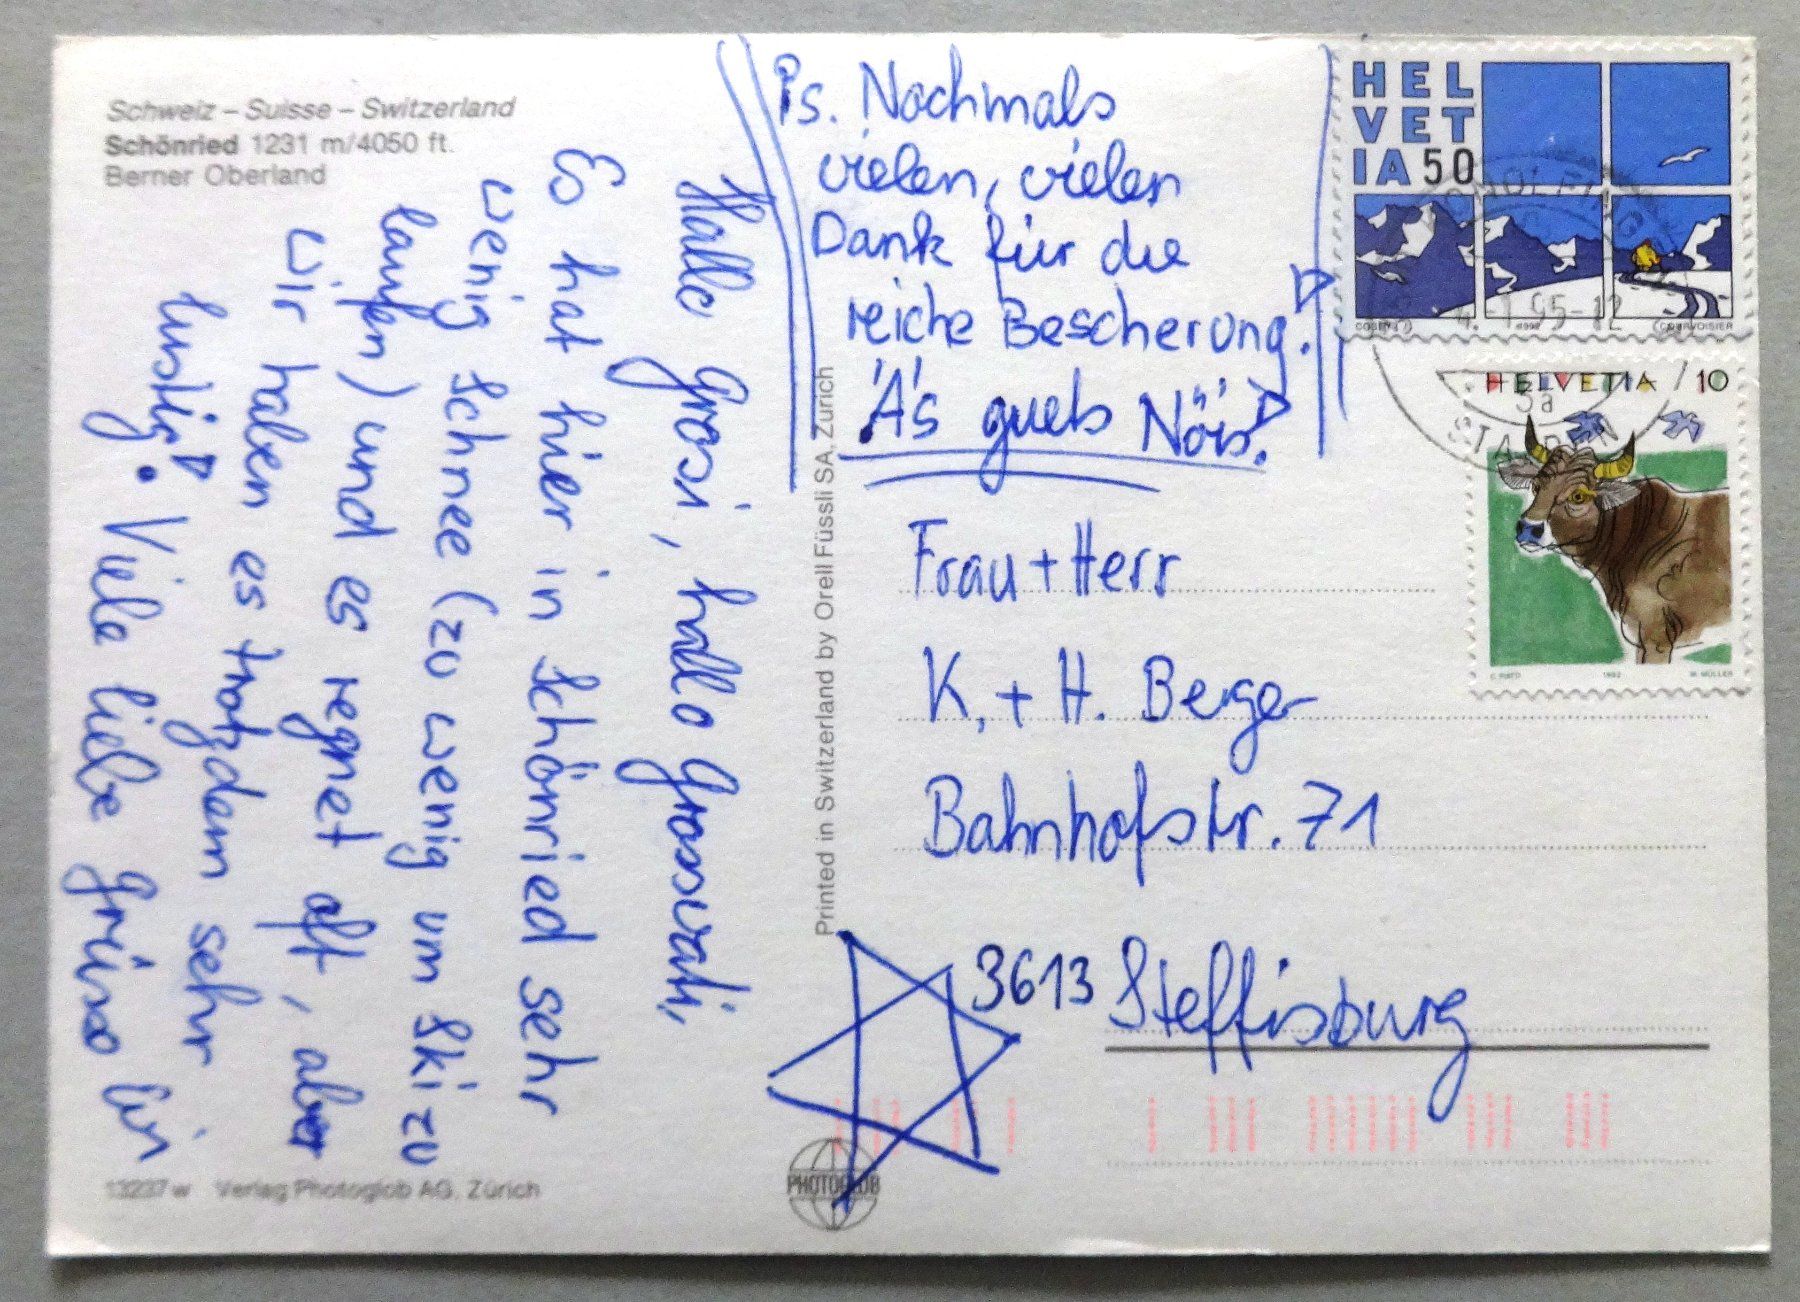 Schweiz – Suisse – Switzerland
Schönried 1231 m/4050 ft.
Berner Oberland
Hallo Grosi, hallo Grossvati,
Es hat hier in Schönried sehr
wenig Schnee (zu wenig um Ski zu
laufen) und es regnet oft, aber
wir haben es trotzdem sehr
lustig! Viele liebe Grüsse
13237 w Verlag Photoglob AG, Zürich
Printed in Switzerland by Orell Füssli SA, Zürich
PHOTOGLOB
Ps. Nochmals
vielen, vielen
Dank für die
reiche Bescherung!
Ä's guets Nöis!
Frau + Herr
K. + H. Berger
Bahnhofstr. 71
3613 Steffisburg
HEL
VET
IA 50
1992 COURVOISIER
4.-1.95-12
HELVETIA 10
5a
1992 M. MÜLLER